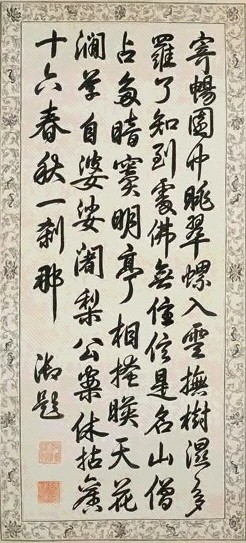 寄暢園中眺翠螺入雲撫樹濕多
羅了知到處佛無住信是名山僧
占多暗竇明亭相掩映天花
澗草自婆娑闍梨公案休拈舊
十六春秋一剎那
御題